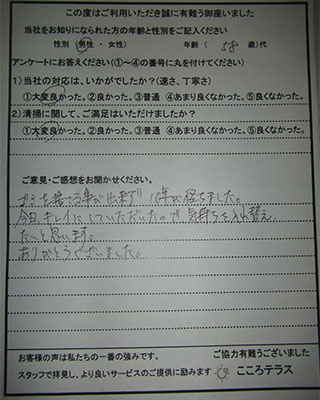 この度はご利用いただき誠に有難う御座いました
当社をお知りになられた方の年齢と性別をご記入ください
性別 (男性 ・ 女性) 年齢 ( 58 歳)代
アンケートにお答えください(①～④の番号に丸を付けてください)
1)当社の対応は、いかがでしたか?(速さ、丁寧さ)
①大変良かった。②良かった。③普通 ④あまり良くなかった。⑤良くなかった。
2)清掃に関して、ご満足はいただけましたか?
①大変良かった。②良かった。③普通 ④あまり良くなかった。⑤良くなかった。
ご意見・ご感想をお聞かせください。
ゴミを捨てる事が出来ず 10年が経ちました。
今回、キレイにしていただいたので 気持ちを入れ替え
たいと思います。
ありがとうございました。
お客様の声は私たちの一番の強みです。 ご協力有難うございました
スタッフで拝見し、より良いサービスのご提供に励みます こころテラス